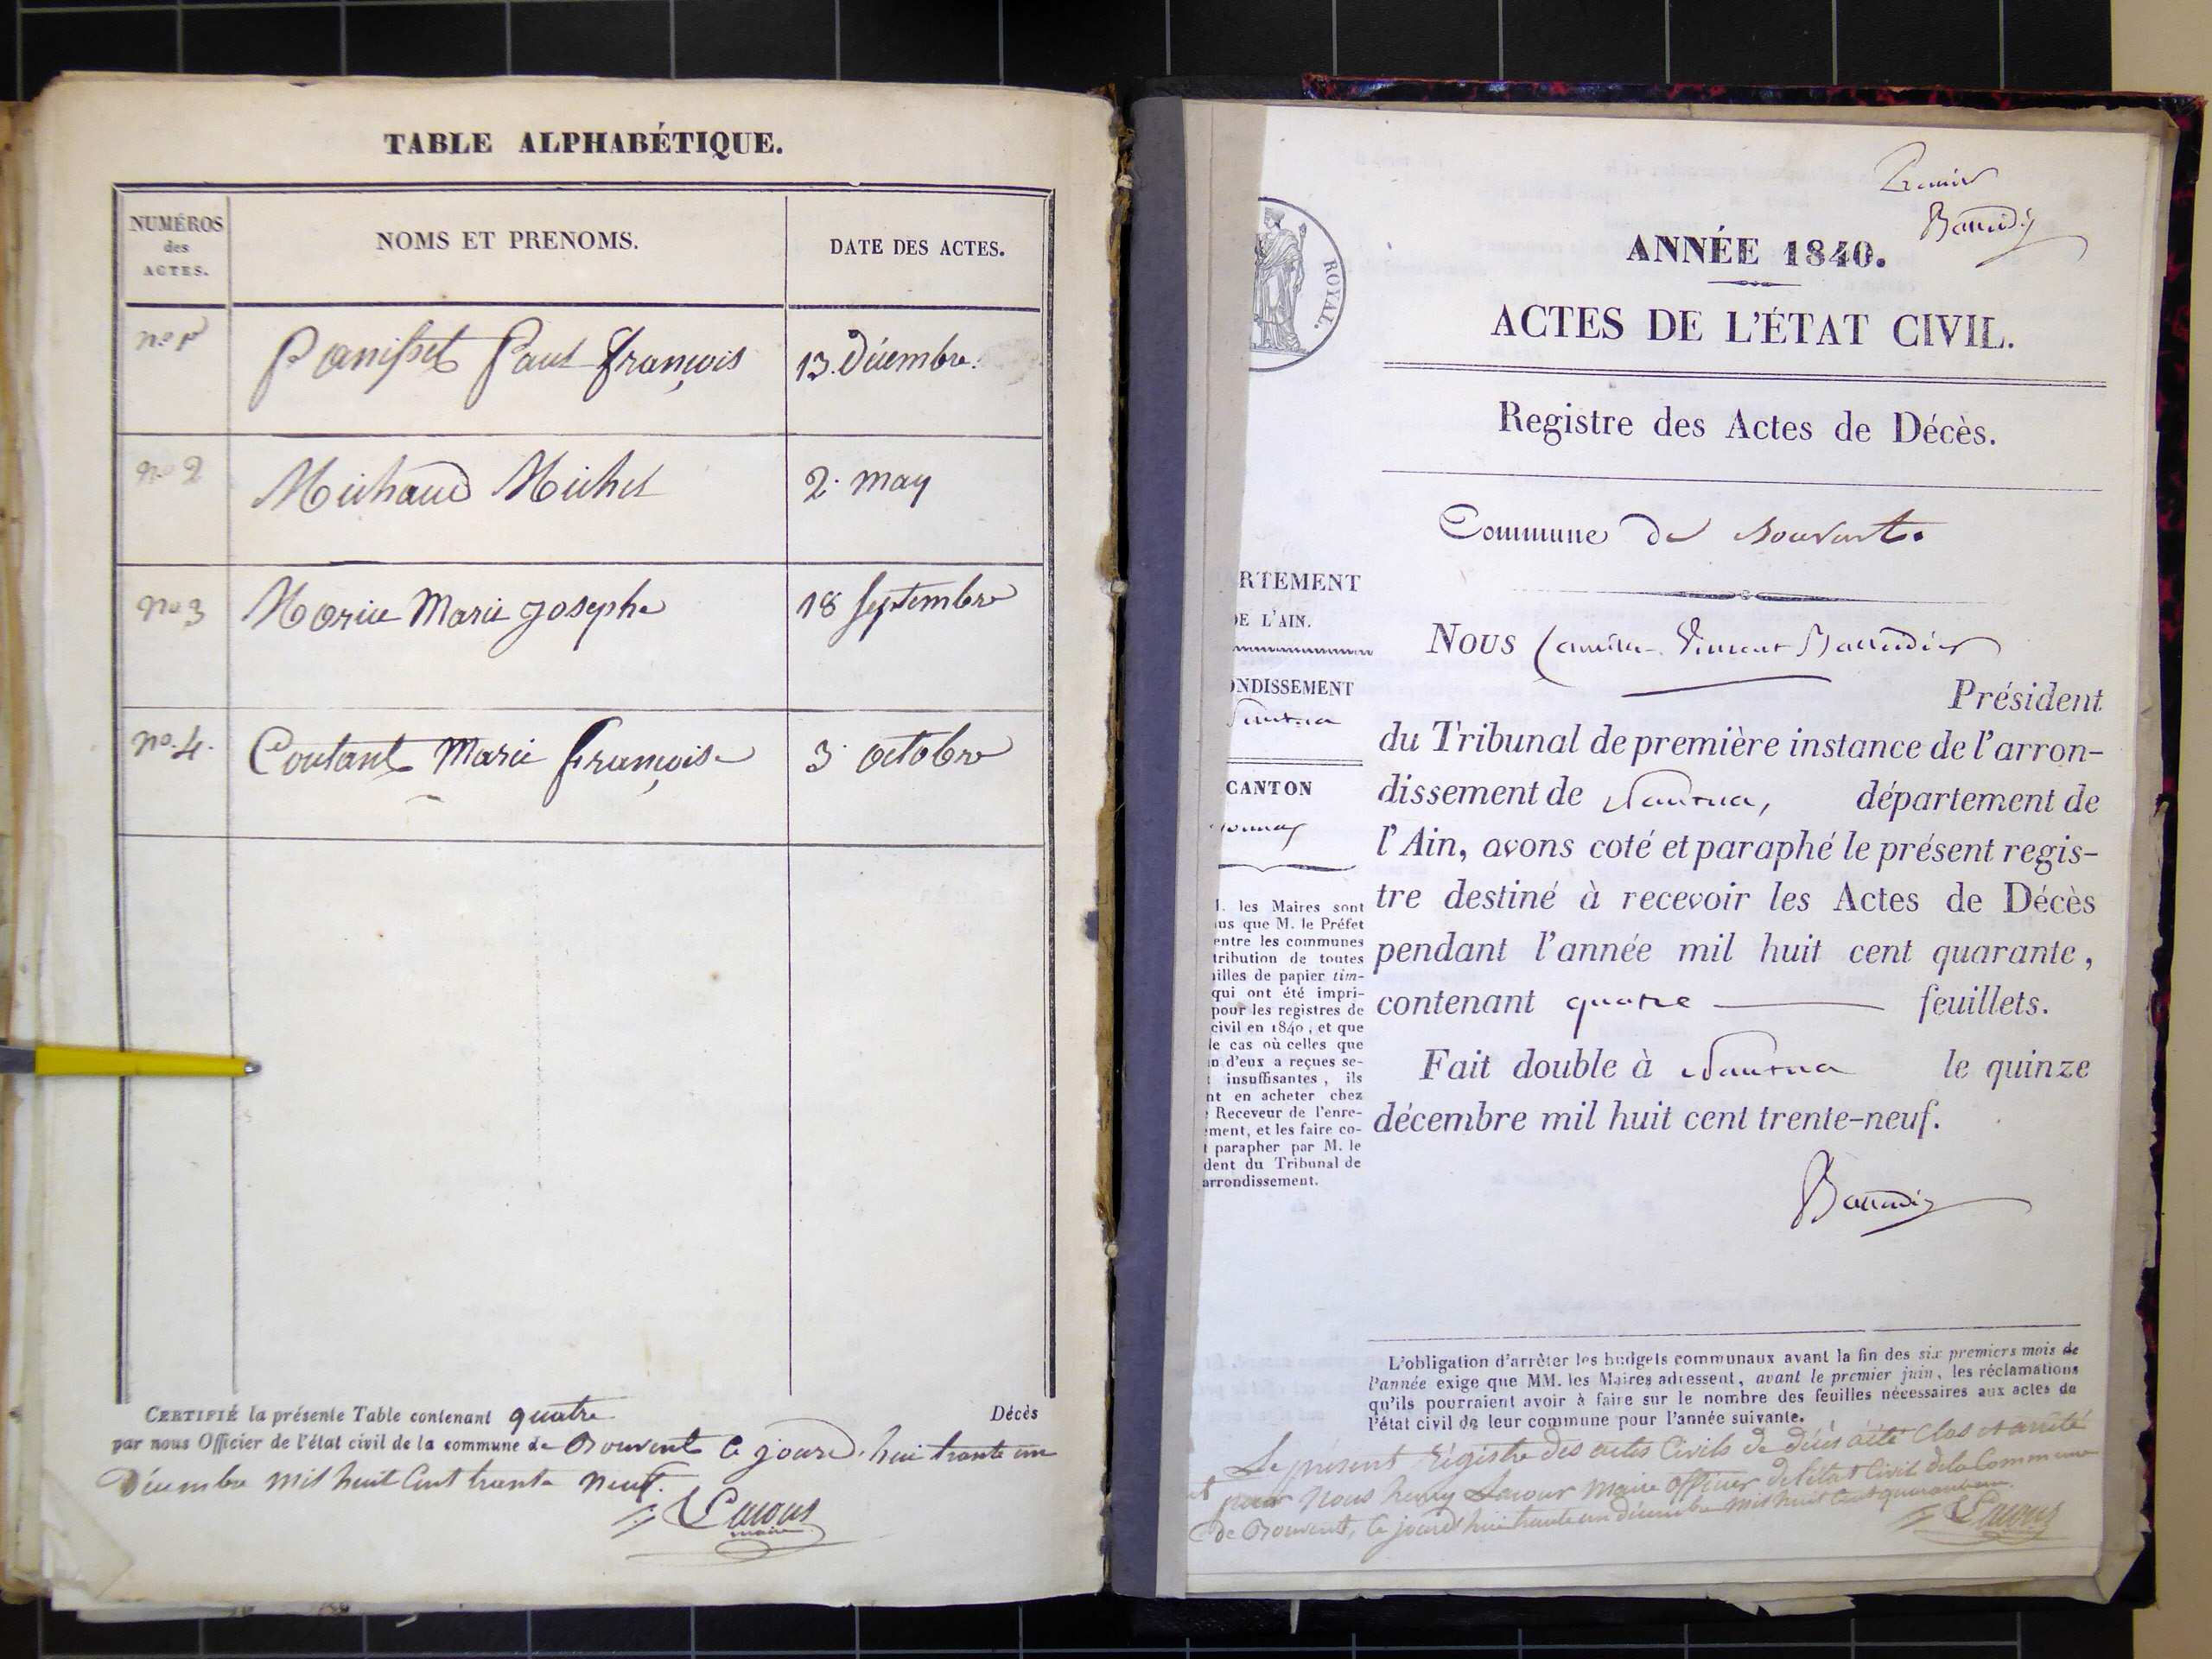 TABLE ALPHABÉTIQUE.
NUMÉROS
des
ACTES.
NOMS ET PRENOMS.
DATE DES ACTES.
no 1er
Panisset Paul François
13. Décembre.
no 2
Michaud Michel
2. may
no 3
Morice Marie Josephe
18 Septembre
no. 4.
Coutant Marie Françoise
3 octobre
CERTIFIÉ la présente Table contenant quatre Décès
par nous Officier de l'état civil de la commune de Bouvent Ce jourd'hui trante un
Décembre mil huit Cent trante neuf.
Lacour
maire
Premier
Baudi
ANNÉE 1840.
ACTES DE L'ÉTAT CIVIL.
ROYAL.
Registre des Actes de Décès.
Commune de Bouvent.
RTEMENT
DE L'AIN.
ONDISSEMENT
Nantua
CANTON
onnax
. les Maires sont
us que M. le Préfet
entre les communes
tribution de toutes
illes de papier tim-
qui ont été impri-
pour les registres de
civil en 1840, et que
le cas où celles que
n d'eux a reçues se-
t insuffisantes, ils
nt en acheter chez
Receveur de l'enre-
ment, et les faire co-
t parapher par M. le
dent du Tribunal de
arrondissement.
Nous Camille Vincent
Président
du Tribunal de première instance de l'arron-
dissement de Nantua, département de
l'Ain, avons coté et paraphé le présent regis-
tre destiné à recevoir les Actes de Décès
pendant l'année mil huit cent quarante,
contenant quatre feuillets.
Fait double à Nantua le quinze
décembre mil huit cent trente-neuf.
L'obligation d'arrêter les budgets communaux avant la fin des six premiers mois de
l'année exige que MM. les Maires adressent, avant le premier juin, les réclamations
qu'ils pourraient avoir à faire sur le nombre des feuilles nécessaires aux actes de
l'état civil de leur commune pour l'année suivante.
Le présent Régistre des actes Civils de décès a été Clos et arrêté
par Nous henry Lacour Maire officier de l'état Civil de la Commune
de Bouvent, Ce jourd'hui trante un décembre mil huit Cent quarante
Lacour